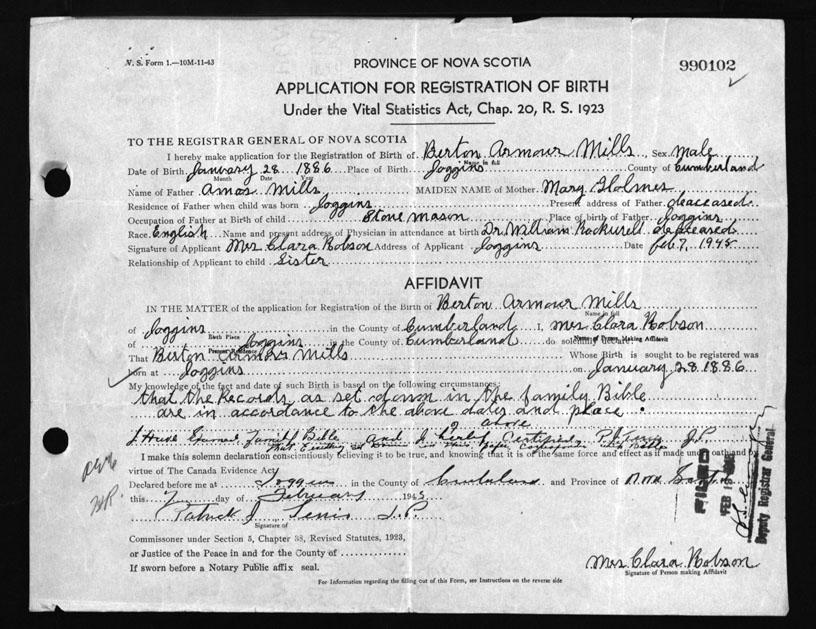 V. S. Form 1.—10M-11-43
PROVINCE OF NOVA SCOTIA
990102
APPLICATION FOR REGISTRATION OF BIRTH
Under the Vital Statistics Act, Chap. 20, R. S. 1923
TO THE REGISTRAR GENERAL OF NOVA SCOTIA
I hereby make application for the Registration of Birth of Berton Armour Mills Sex Male
Name in full
Date of Birth January 28 1886 Place of Birth Joggins County of Cumberland
Month Date Year
Name of Father Amos Mills MAIDEN NAME of Mother Mary Holmes
Residence of Father when child was born Joggins Present address of Father deaceased
Occupation of Father at Birth of child Stone Mason Place of birth of Father Joggins
Race English Name and present address of Physician in attendance at birth Dr William Rockwell deaceased
Signature of Applicant Mrs Clara Robson Address of Applicant Joggins Date Feb 7, 1945
Relationship of Applicant to child Sister
AFFIDAVIT
IN THE MATTER of the application for Registration of the Birth of Berton Armour Mills
Name in full
of Joggins in the County of Cumberland I, Mrs Clara Robson
Birth Place Name of Person Making Affidavit
of Joggins in the County of Cumberland do solemnly declare
Present Residence
That Berton Armour Mills Whose Birth is sought to be registered was
born at Joggins on January 28 1886
My knowledge of the fact and date of such Birth is based on the following circumstances:
that the Records as set down in the family Bible
are in accordance to the above dates and place.
Family Bible and I Certified J.P.
I make this solemn declaration conscientiously believing it to be true, and knowing that it is of the same force and effect as if made under oath and by
virtue of The Canada Evidence Act
Declared before me at Joggins in the County of Cumberland and Province of Nova Scotia
this 7 day of February 1945
Patrick J J.P.
Signature of
Commissioner under Section 5, Chapter 38, Revised Statutes, 1923,
or Justice of the Peace in and for the County of
If sworn before a Notary Public affix seal.
FEB
Deputy Registrar General
Mrs Clara Robson
Signature of Person making Affidavit
For Information regarding the filling out of this Form, see Instructions on the reverse side